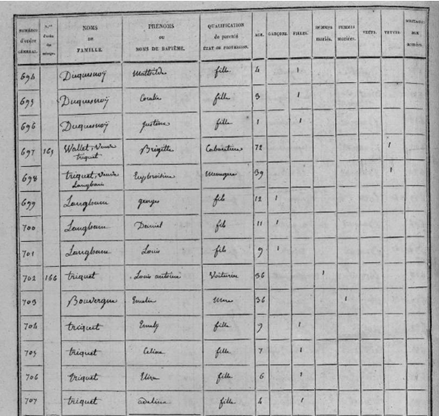 NUMÉROS d'ordre GÉNÉRAL. NOMS DE FAMILLE. PRÉNOMS OU NOMS DE BAPTÊME. QUALIFICATION ÉTAT OU PROFESSION. AGE. GARÇONS. FILLES. HOMMES mariés. FEMMES mariées. VEUFS. VEUVES.
694 Duquesnoy Mathilde fille 4 1
695 Duquesnoy fille 3 1
696 Duquesnoy Justine fille 1 1
697 165 Wallet, Veuve triquet Brigitte 72 1
698 triquet, Veuve Langbeau Euphroisine Ménagère 39 1
699 Langbeau georges fils 12 1
700 Langbeau Daniel fils 11 1
701 Langbeau Louis fils 9 1
702 166 triquet Louis antoine Voiturier 36 1
703 Bouvergne 36 1
704 triquet fille 9 1
705 triquet Celina fille 7 1
706 triquet Elise fille 6 1
707 triquet fille 4 1